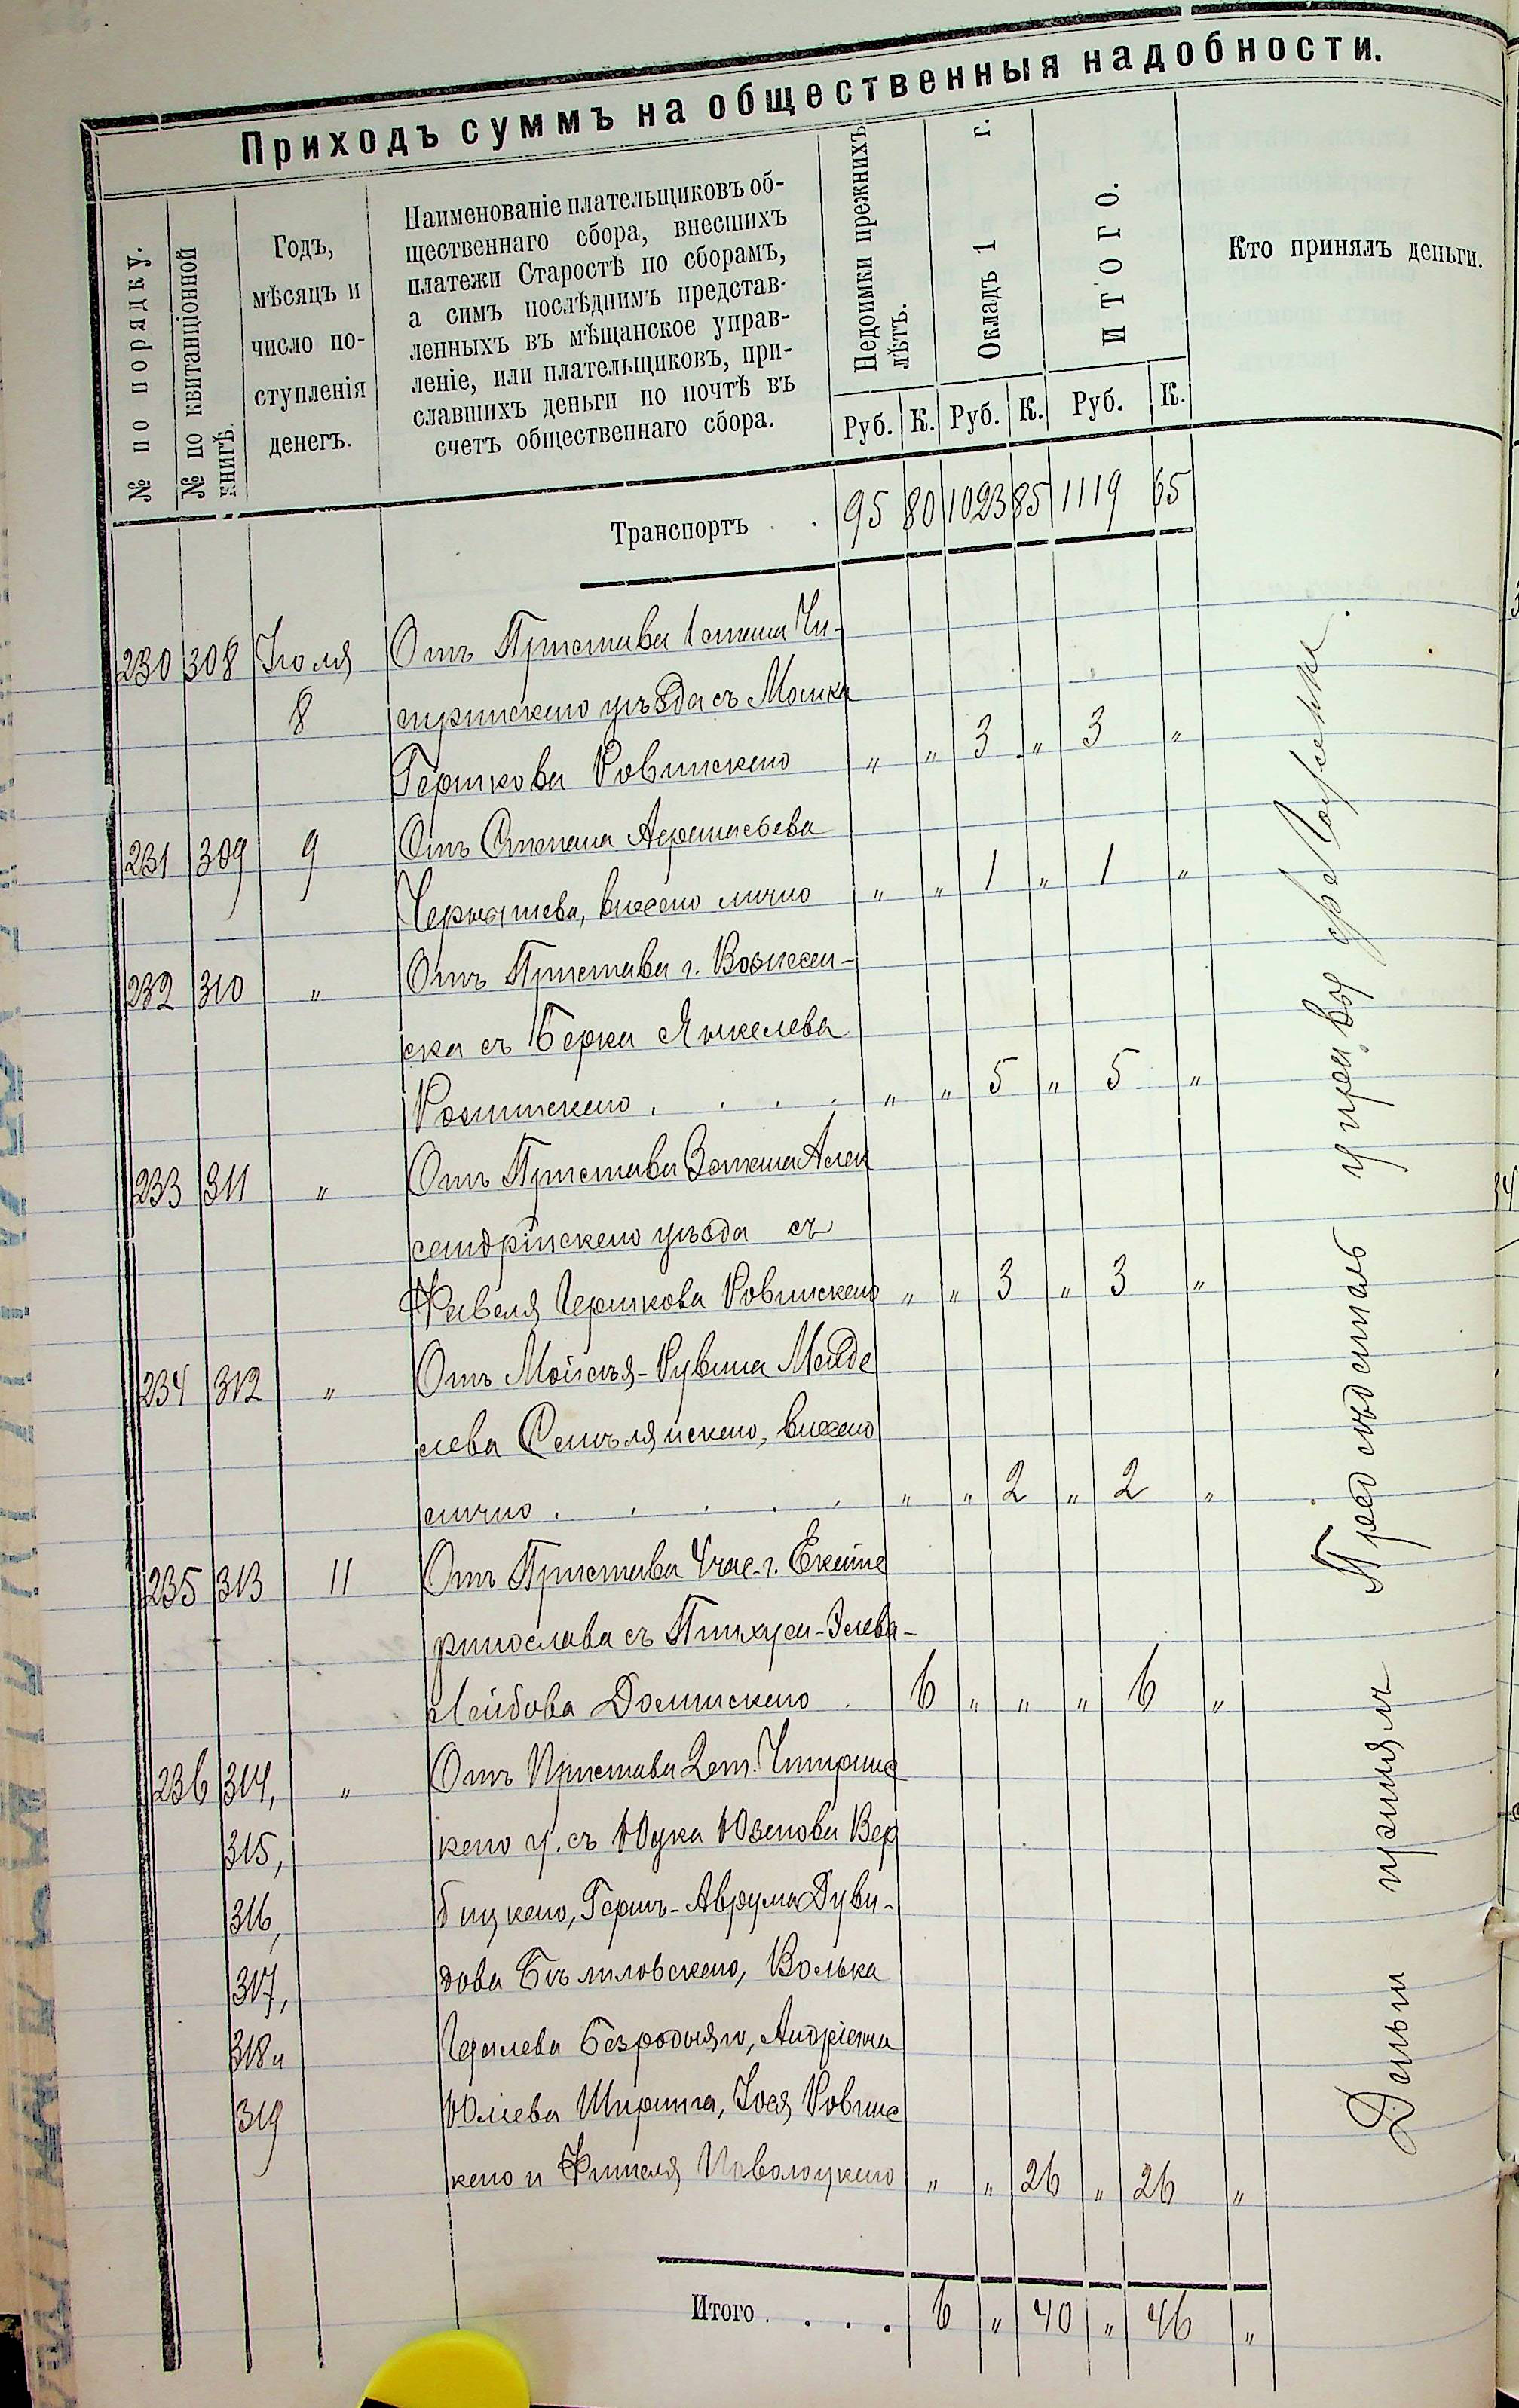 Приходъ суммъ на общественныя надобности.
№ по порядку.
№ по квитанціонной
книгѣ.
Годъ,
мѣсяцъ и
число по-
ступленія
денегъ.
Наименованіе плательщиковъ об-
щественнаго сбора, внесшихъ
платежи Старостѣ по сборамъ,
а симъ послѣднимъ представ-
ленныхъ въ мѣщанское управ-
леніе, или плательщиковъ, при-
славшихъ деньги по почтѣ въ
счетъ общественнаго сбора.
Недоимки прежнихъ
лѣтъ.
Окладъ 1 г.
ИТОГО.
Кто принялъ деньги.
Руб. К. Руб. К. Руб. К.
Транспортъ . . 95 80 1023 85 1119 65
230 308 Іюля Отъ Пристава 1 стана Чи-
8 гиринскаго уѣзда съ Мошка
Гершкова Ровинскаго " " 3 " 3 "
231 309 9 Отъ Степана Афанасьева
Чернышева, внесено лично " " 1 " 1 "
232 310 " Отъ Пристава г. Вознесен-
ска съ Берка Янкелева
" " 5 " 5 "
233 311 " Отъ Пристава 3 стана Алек
сандрійскаго уѣзда съ
Файвеля Гершкова Ровинскаго " " 3 " 3 "
234 312 " Отъ Мойсѣя-Рувина Менде
лева внесено
лично . . . . . " " 2 " 2 "
235 313 11 Отъ Пристава г. Екате
ринослава съ Пинхуса-Зелева-
Лейбова Долинскаго . 6 " " " 6 "
236 314, " Отъ Пристава 2 ст. Чигринс
315, каго у. съ Юзепова Вер
316, бицкаго, Гершъ-Аврума Дуви-
317, дова Бѣлиловскаго, Волька
318 и Безроднаго,
319 Іося Ровинс
каго и Паволоцкаго " " 26 " 26 "
Итого . . . . 6 " 40 " 46 "
Деньги принялъ Предсѣдатель управы